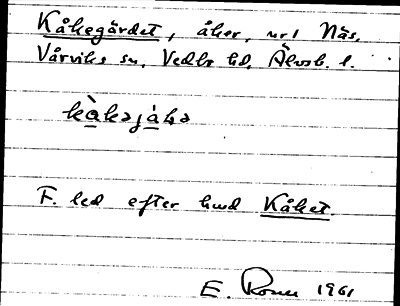 Kåkegärdet, åker, ur 1 Näs.
Vårviks sn. Vedbo hd. Älvsb. l.
kàkəjá
F. led efter hmd Kåket.
E. 1961